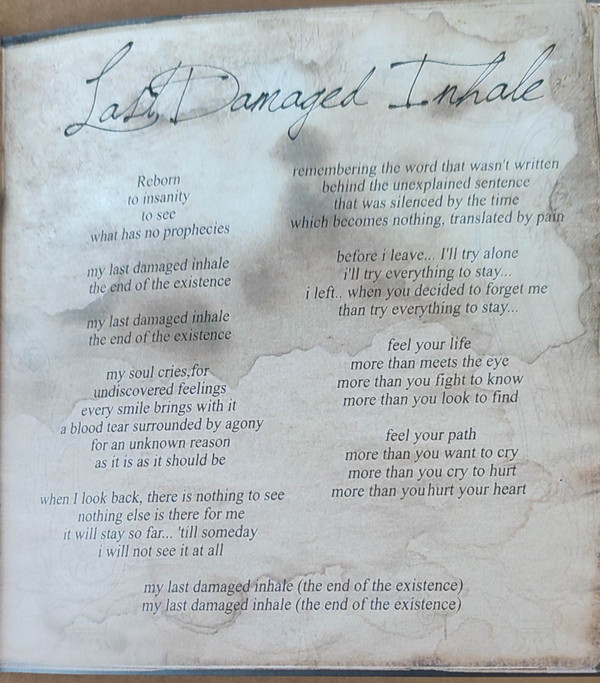 Last Damaged Inhale
Reborn
to insanity
to see
what has no prophecies
my last damaged inhale
the end of the existence
my last damaged inhale
the end of the existence
my soul cries,for
undiscovered feelings
every smile brings with it
a blood tear surrounded by agony
for an unknown reason
as it is as it should be
when I look back, there is nothing to see
nothing else is there for me
it will stay so far... 'till someday
i will not see it at all
remembering the word that wasn't written
behind the unexplained sentence
that was silenced by the time
which becomes nothing, translated by pain
before i leave... I'll try alone
i'll try everything to stay...
i left.. when you decided to forget me
than try everything to stay...
feel your life
more than meets the eye
more than you fight to know
more than you look to find
feel your path
more than you want to cry
more than you cry to hurt
more than you hurt your heart
my last damaged inhale (the end of the existence)
my last damaged inhale (the end of the existence)